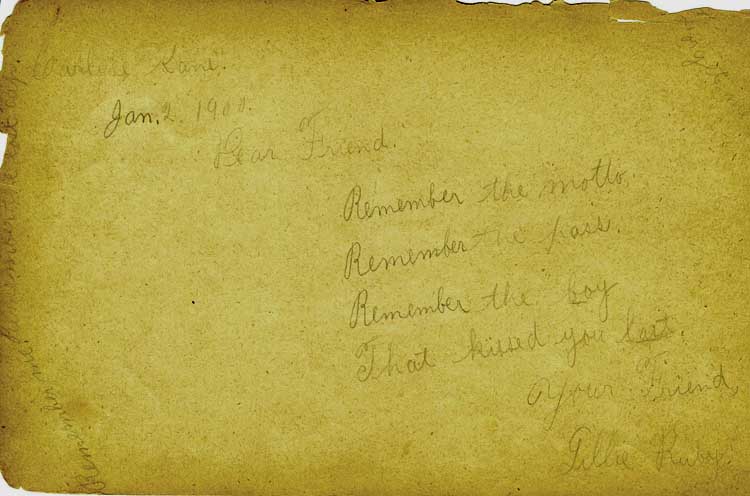 Kans.
Jan. 2. 1900.
Dear Friend.
Remember the motto,
Remember the pass.
Remember the boy
That kissed you last.
Your Friend,
Tillie Ruby.
Remember me